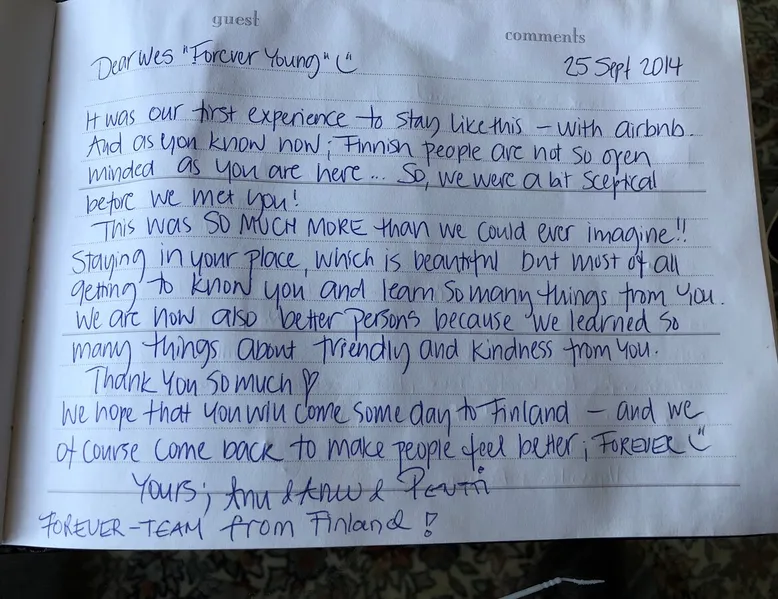 guest
comments
Dear Wes "Forever Young"
25 Sept 2014
It was our first experience to stay like this – with airbnb.
And as you know now; Finnish people are not so open
minded as you are here ... So, we were a bit sceptical
before we met you!
This was SO MUCH MORE than we could ever imagine!!
Staying in your place, which is beautiful but most of all
getting to know you and learn so many things from you.
We are now also better persons because we learned so
many things about friendly and kindness from you.
Thank you so much ♡
We hope that you will come some day to Finland – and we
of course come back to make people feel better; FOREVER
Yours; Anu & Anu & Pentti
FOREVER-TEAM from Finland!